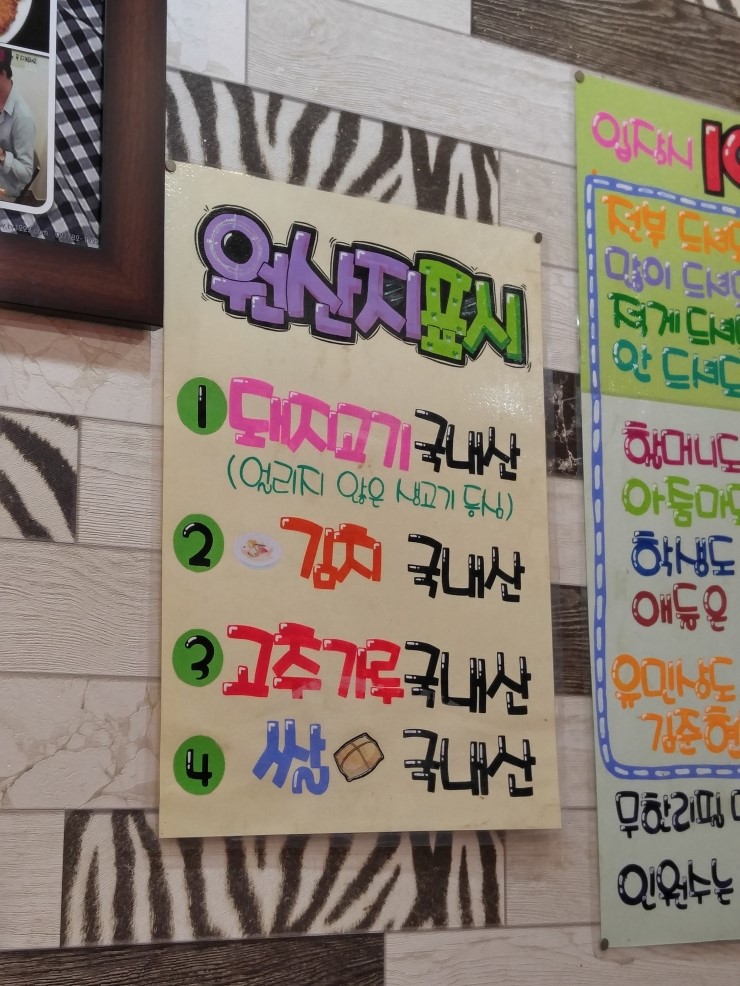 원산지표시
1 돼지고기 국내산
(얼리지 않은 생고기 등심)
2 김치 국내산
3 고추가루 국내산
4 쌀 국내산
입장시
전부 드셔도
많이 드셔도
적게 드셔도
안 드셔도
할머니도
아줌마도
학생도
애들은
유민상도
김준현
무한리필
인원수는